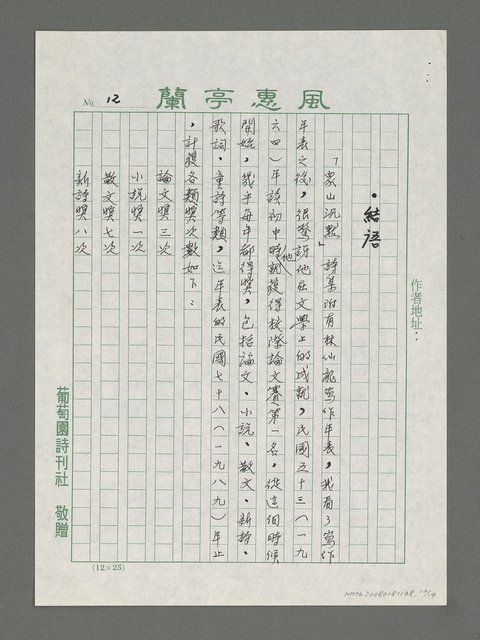 風惠亭蘭
No. 12
作者地址：
•結語
「象山沉默」詩集附有林仙龍寫作年表，我看了寫作
年表之後，很驚訝他在文學上的成就，民國五十三（一九
六四）年該初中時他就獲得校際論文賽第一名，從這個時候
開始，幾乎每年都得獎，包括論文、小說、散文、新詩、
歌詞、童詩等類，迄年表的民國七十八（一九八九）年止
，計獲各類獎次數如下：
論文獎三次
小說獎一次
散文獎七次
新詩獎八次
葡萄園詩刊社 敬贈
(12×25)
NMTL20080181138 12/14